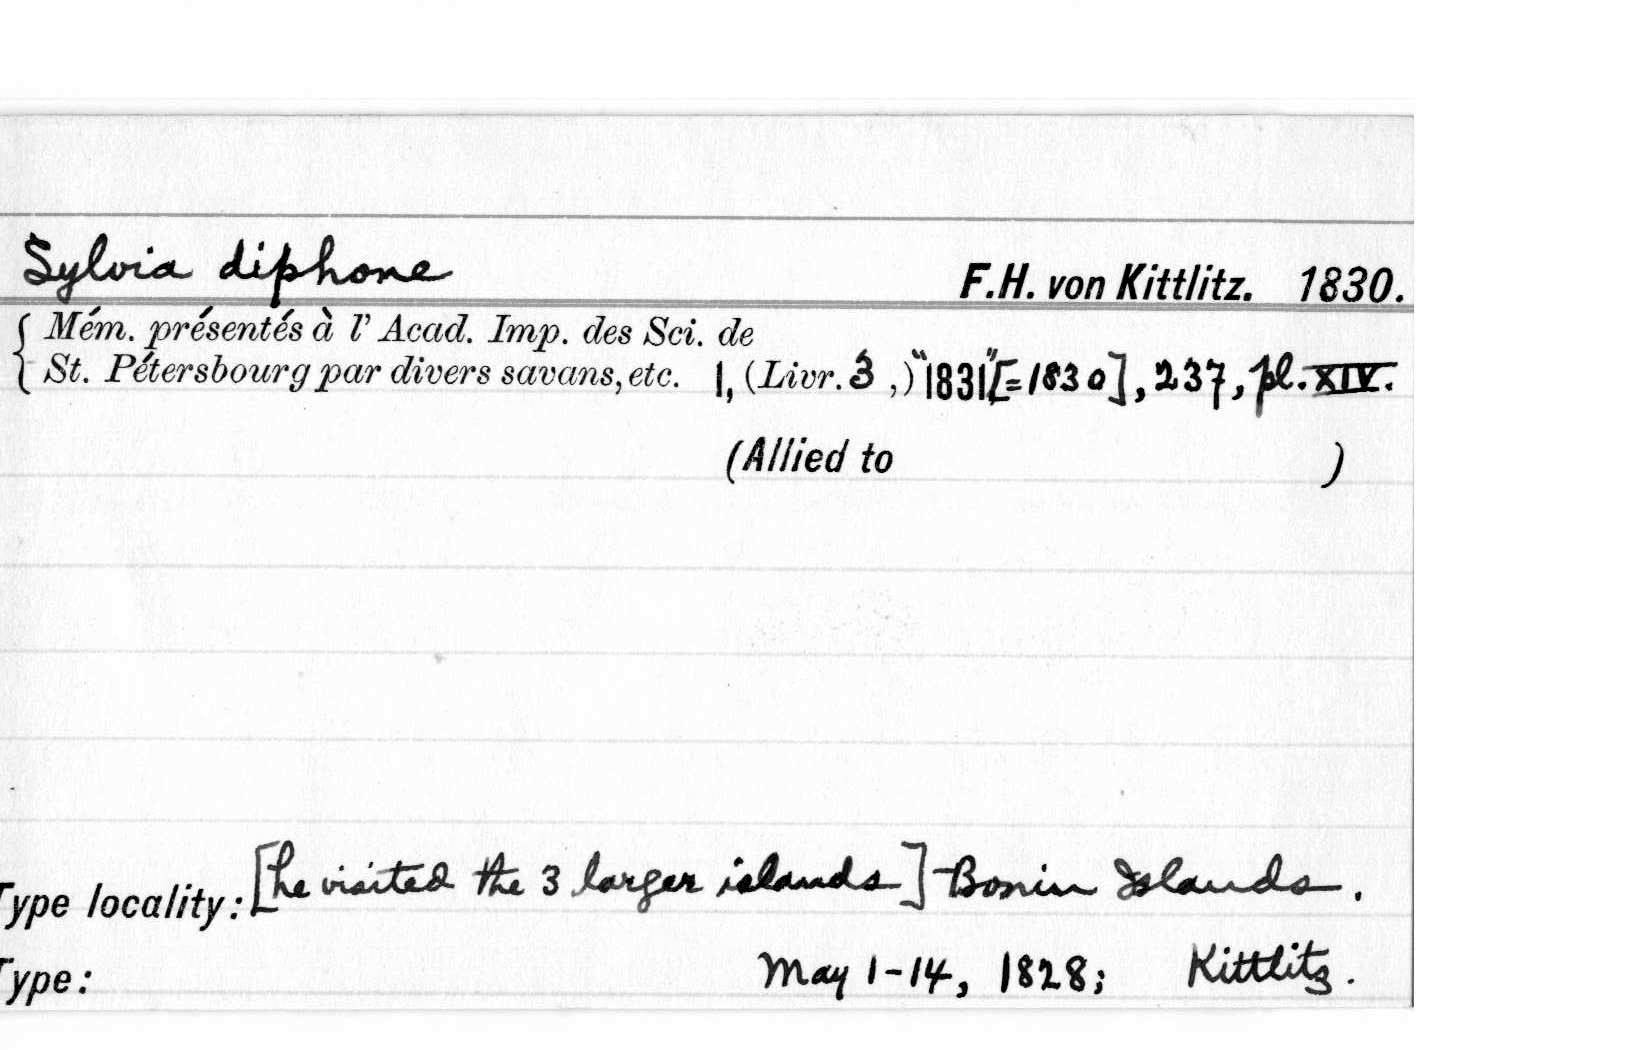 Sylvia diphone F.H. von Kittlitz. 1830.
{ Mém. présentés à l' Acad. Imp. des Sci. de
St. Pétersbourg par divers savans, etc. 1, (Livr. 3 ,) "1831"[=1830], 237, pl. XIV.
(Allied to )
Type locality: [he visited the 3 larger islands] Bonin Islands.
Type: May 1-14, 1828; Kittlitz.